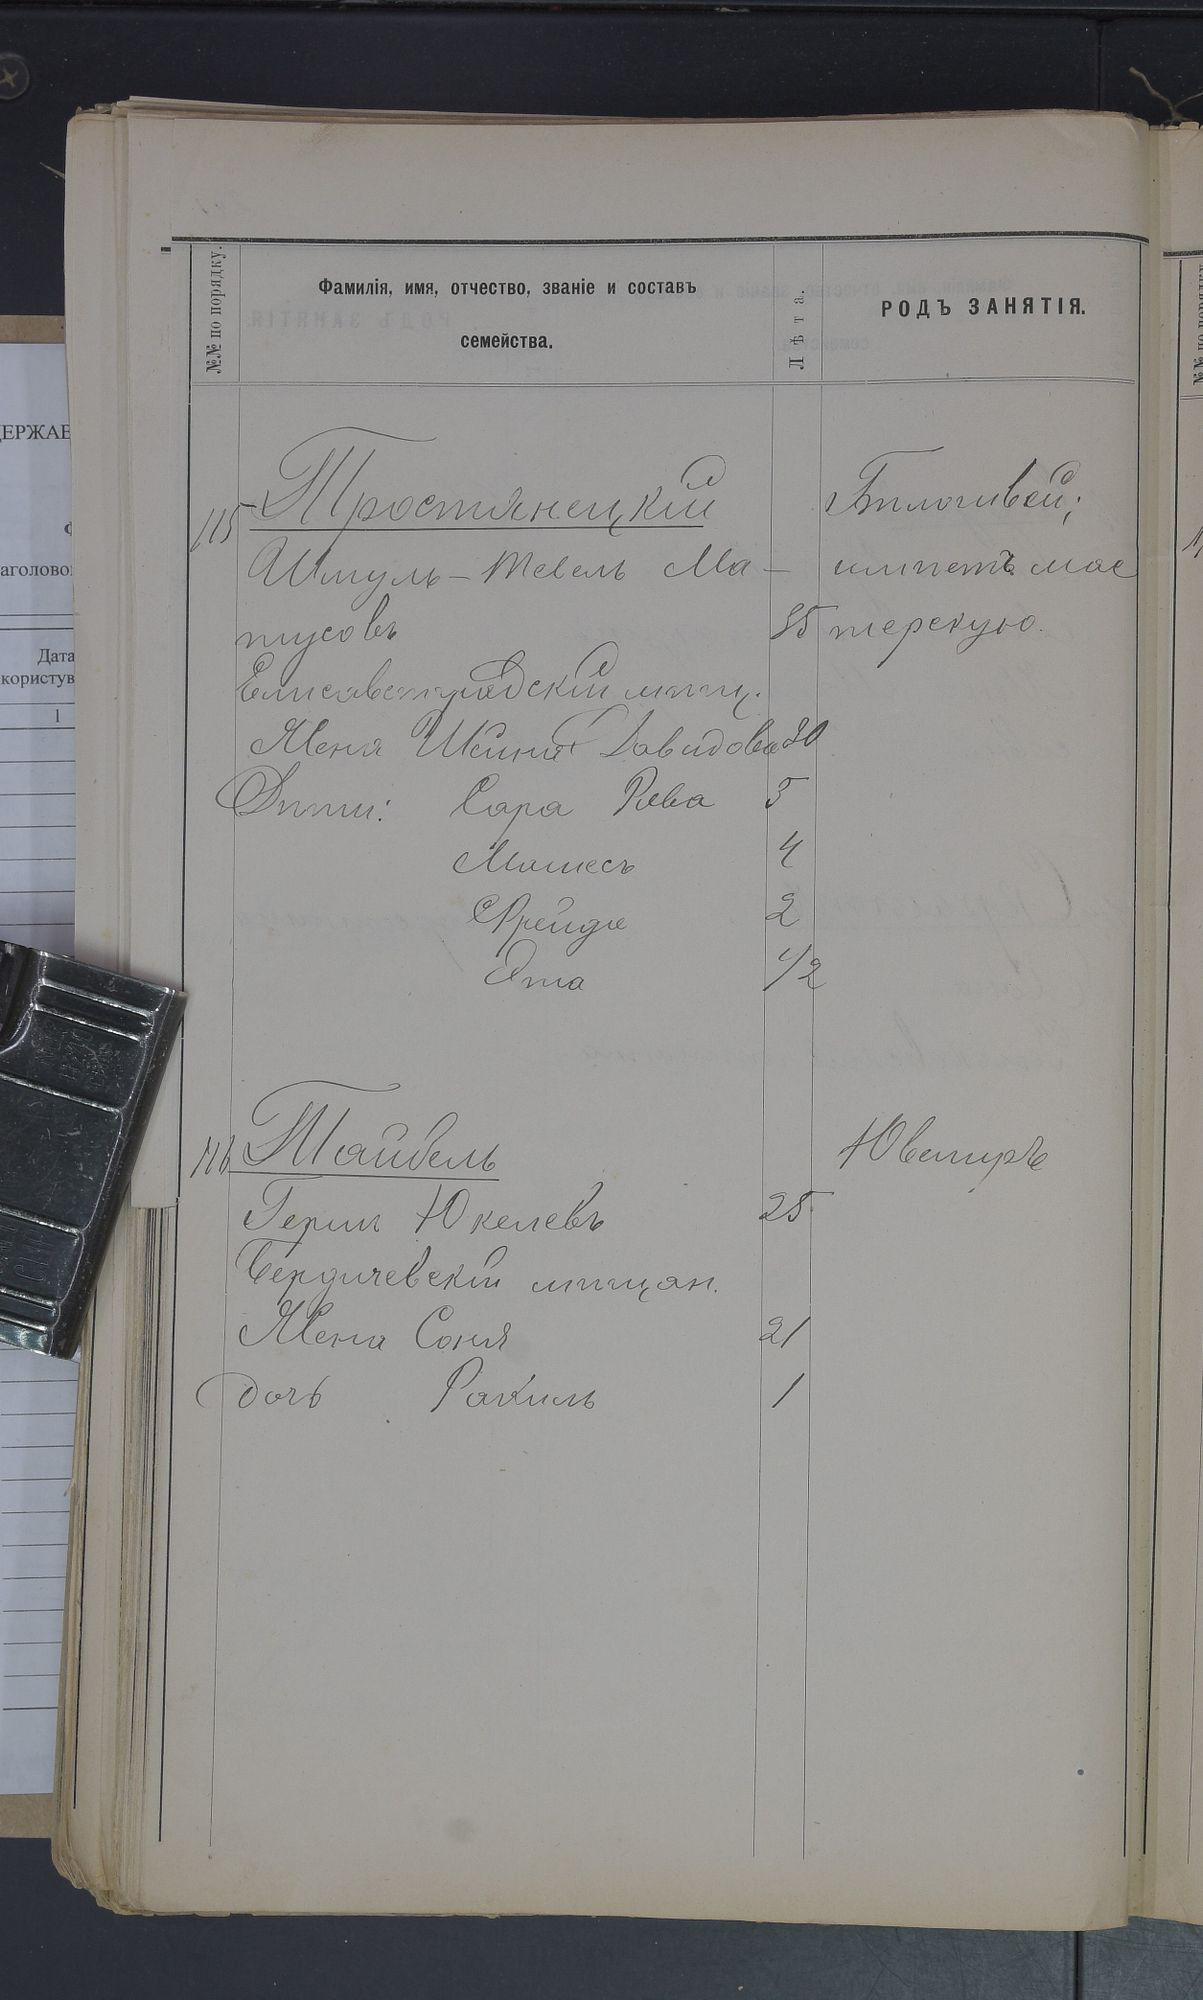 №№ по порядку.
Фамилія, имя, отчество, званіе и составъ
семейства.
Лѣта.
РОДЪ ЗАНЯТІЯ.
115 Тростянецкій Бѣлошвей;
Шмуль-Тевель Ма- имѣетъ мас
тусовъ 35 терскую.
Елисаветградскій мѣщ.
Жена Шейня Давидова 30
Дѣти: Сара Рива 5
4
Фрейда 2
Эта 1/2
116 Тайбель Ювелиръ
Герш Юкелевъ 25
Бердичевскій мѣщан.
Жена Соня 21
дочь Рахиль 1
ДЕРЖАВ
аголово
Дата
користув
1
№№ по порядку